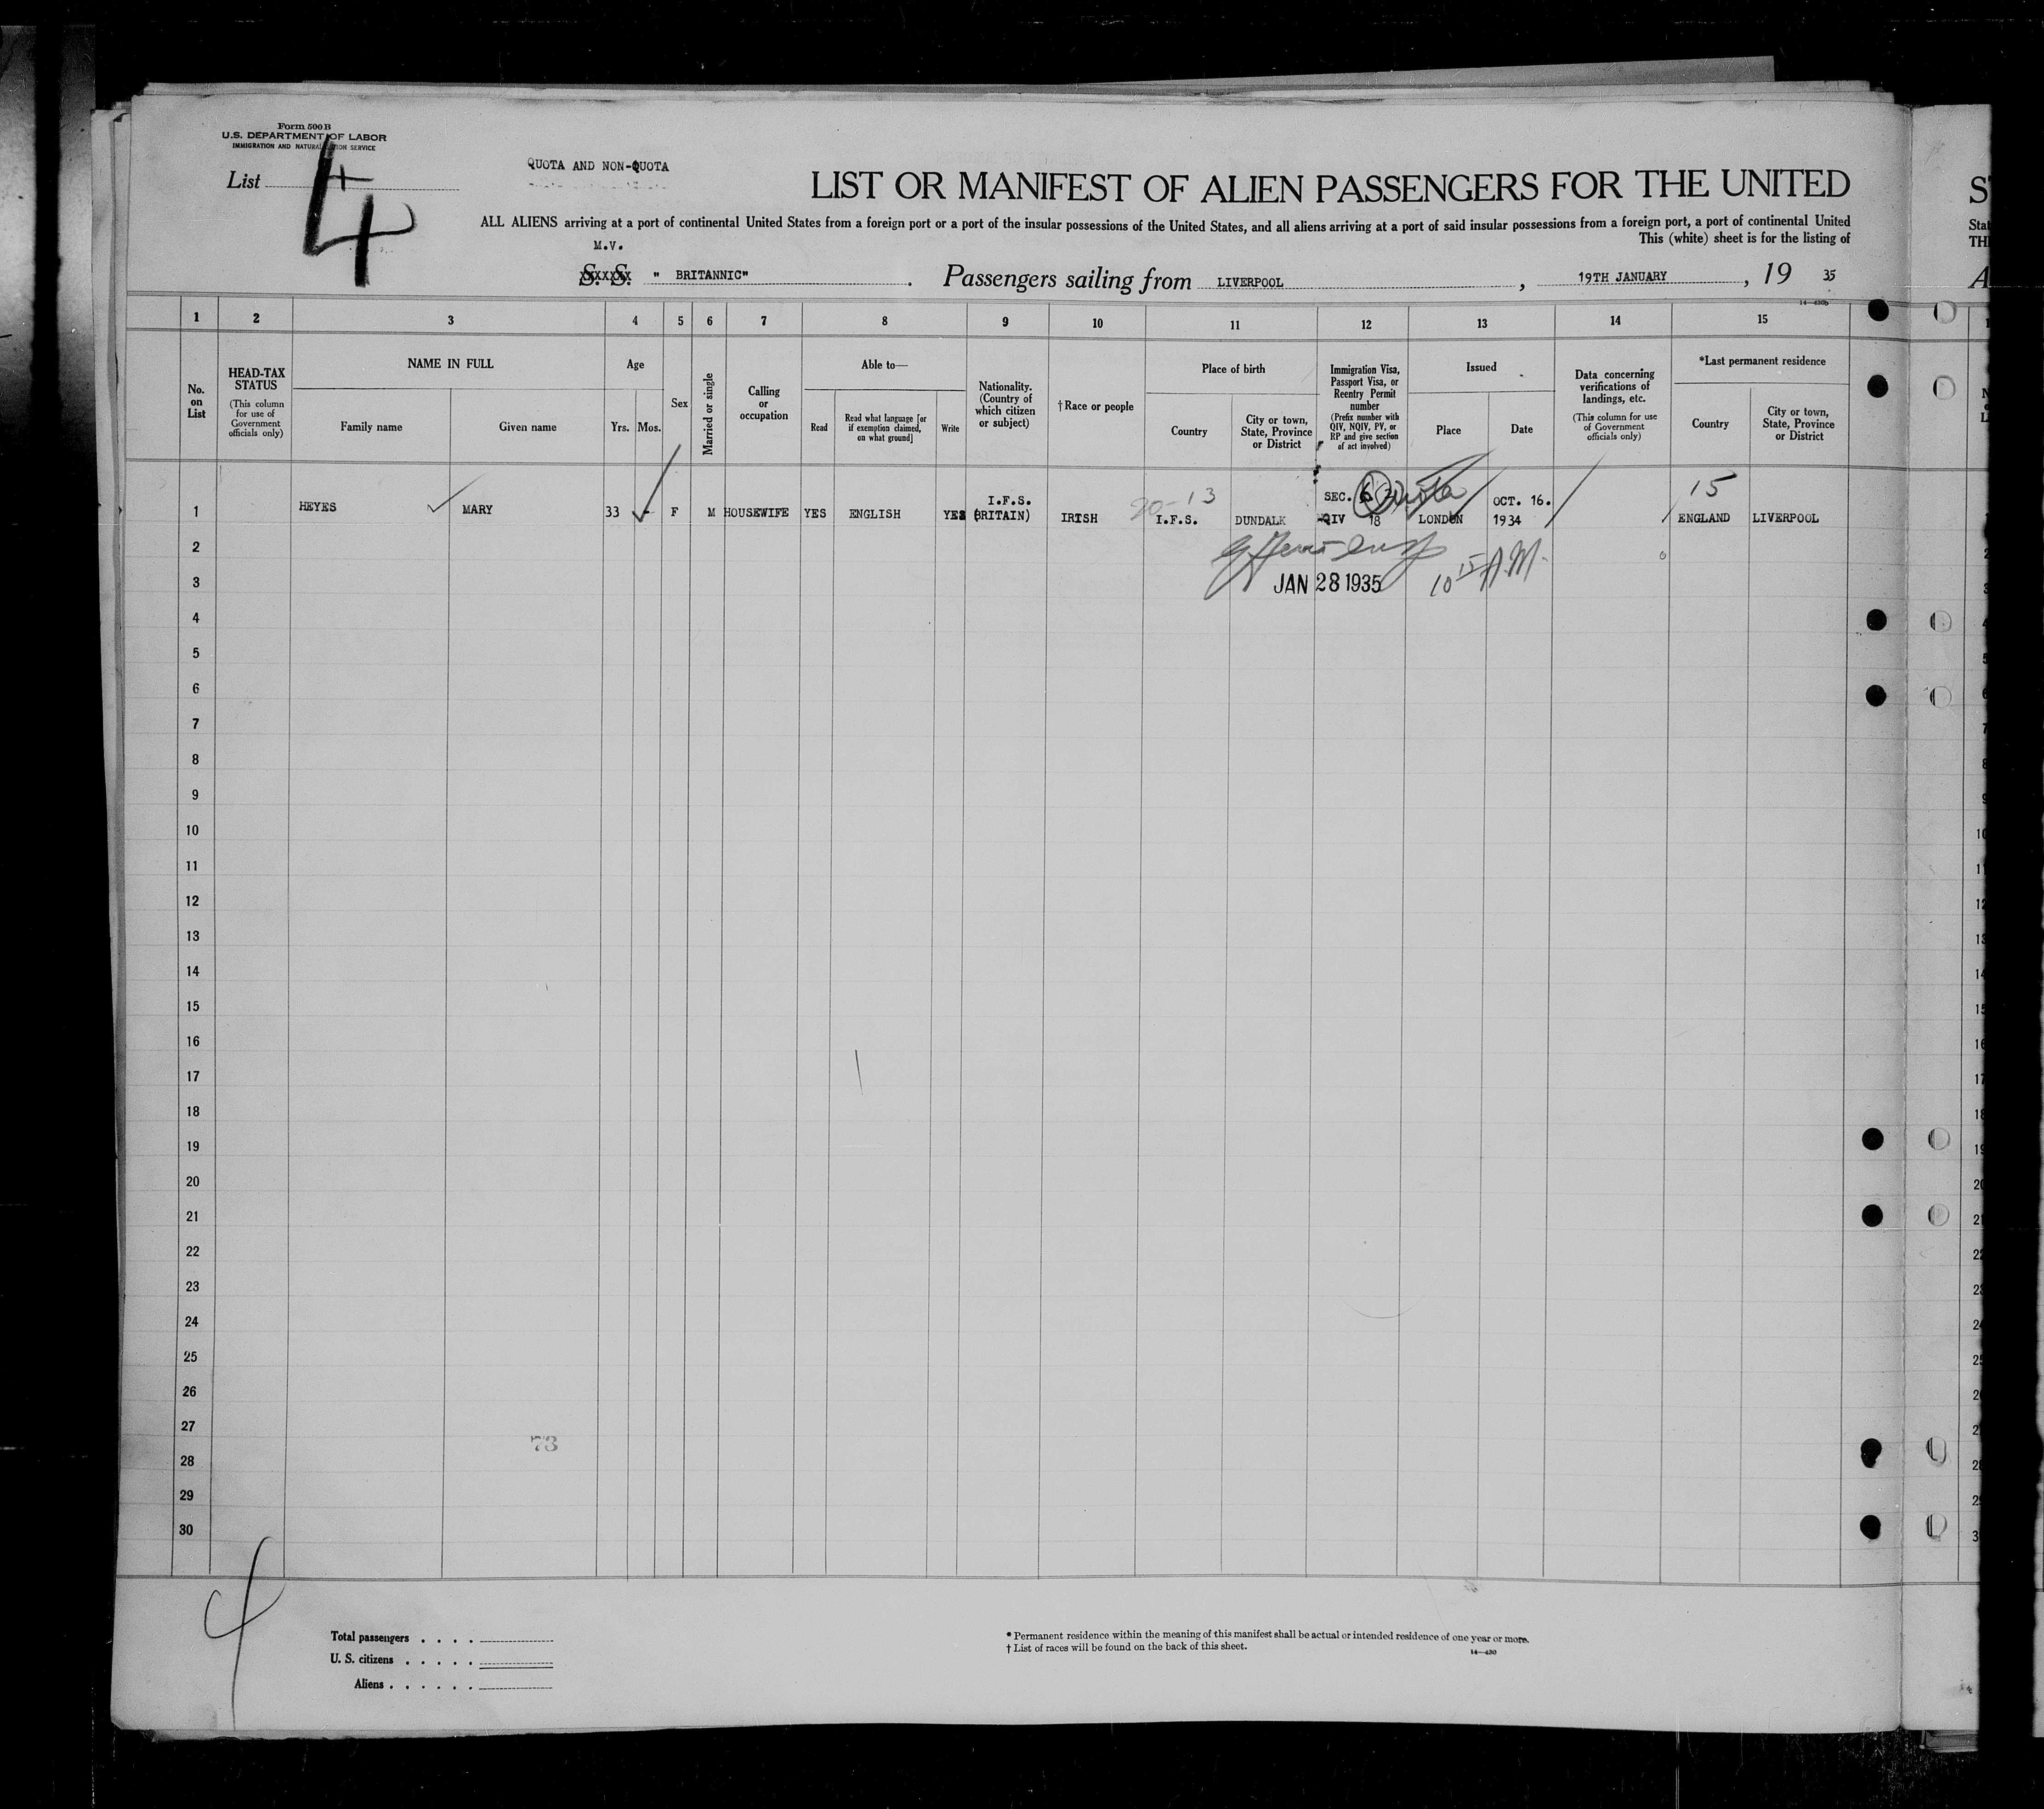 Form 500 B
U.S. DEPARTMENT OF LABOR
IMMIGRATION AND NATURALIZATION SERVICE
List 4
4
QUOTA AND NON-QUOTA
LIST OR MANIFEST OF ALIEN PASSENGERS FOR THE UNITED
ALL ALIENS arriving at a port of continental United States from a foreign port or a port of the insular possessions of the United States, and all aliens arriving at a port of said insular possessions from a foreign port, a port of continental United
This (white) sheet is for the listing of
M.V.
S. S. " BRITANNIC" . Passengers sailing from LIVERPOOL , 19TH JANUARY , 19 35
14—430b
1 2 3 4 5 6 7 8 9 10 11 12 13 14 15
No. on List
HEAD-TAX STATUS
(This column for use of Government officials only)
NAME IN FULL
Family name
Given name
Age
Yrs. Mos.
Sex
Married or single
Calling or occupation
Able to—
Read
Read what language [or if exemption claimed, on what ground]
Write
Nationality. (Country of which citizen or subject)
†Race or people
Place of birth
Country
City or town, State, Province or District
Immigration Visa, Passport Visa, or Reentry Permit number
(Prefix number with QIV, NQIV, PV, or RP and give section of act involved)
Issued
Place
Date
Data concerning verifications of landings, etc.
(This column for use of Government officials only)
*Last permanent residence
Country
City or town, State, Province or District
20-13
15
I.F.S. SEC. 6 Quota OCT. 16.
1 HEYES MARY 33 - F M HOUSEWIFE YES ENGLISH YES (BRITAIN) IRISH I.F.S. DUNDALK QIV 18 LONDON 1934 ENGLAND LIVERPOOL
2
3 JAN 28 1935 10 15 A.M.
4
5
6
7
8
9
10
11
12
13
14
15
16
17
18
19
20
21
22
23
24
25
26
27
73
28
29
30
4
Total passengers . . . .
U. S. citizens . . . . .
Aliens . . . . . .
* Permanent residence within the meaning of this manifest shall be actual or intended residence of one year or more.
† List of races will be found on the back of this sheet.
14—430